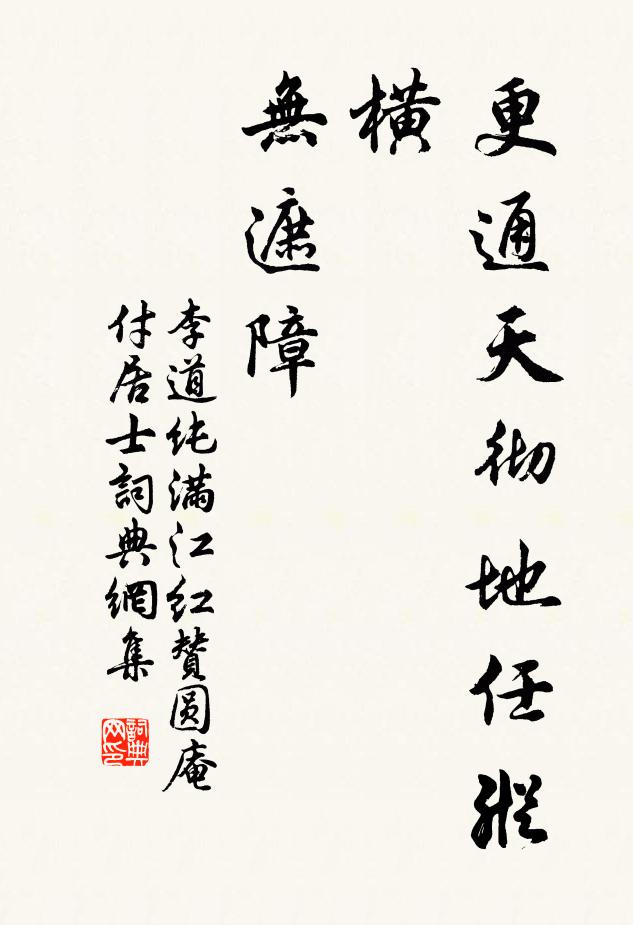 更通天彻地任縱
橫
無遮障
李道纯滿江红贊圆庵
付居士詞典網集
詞典
网印